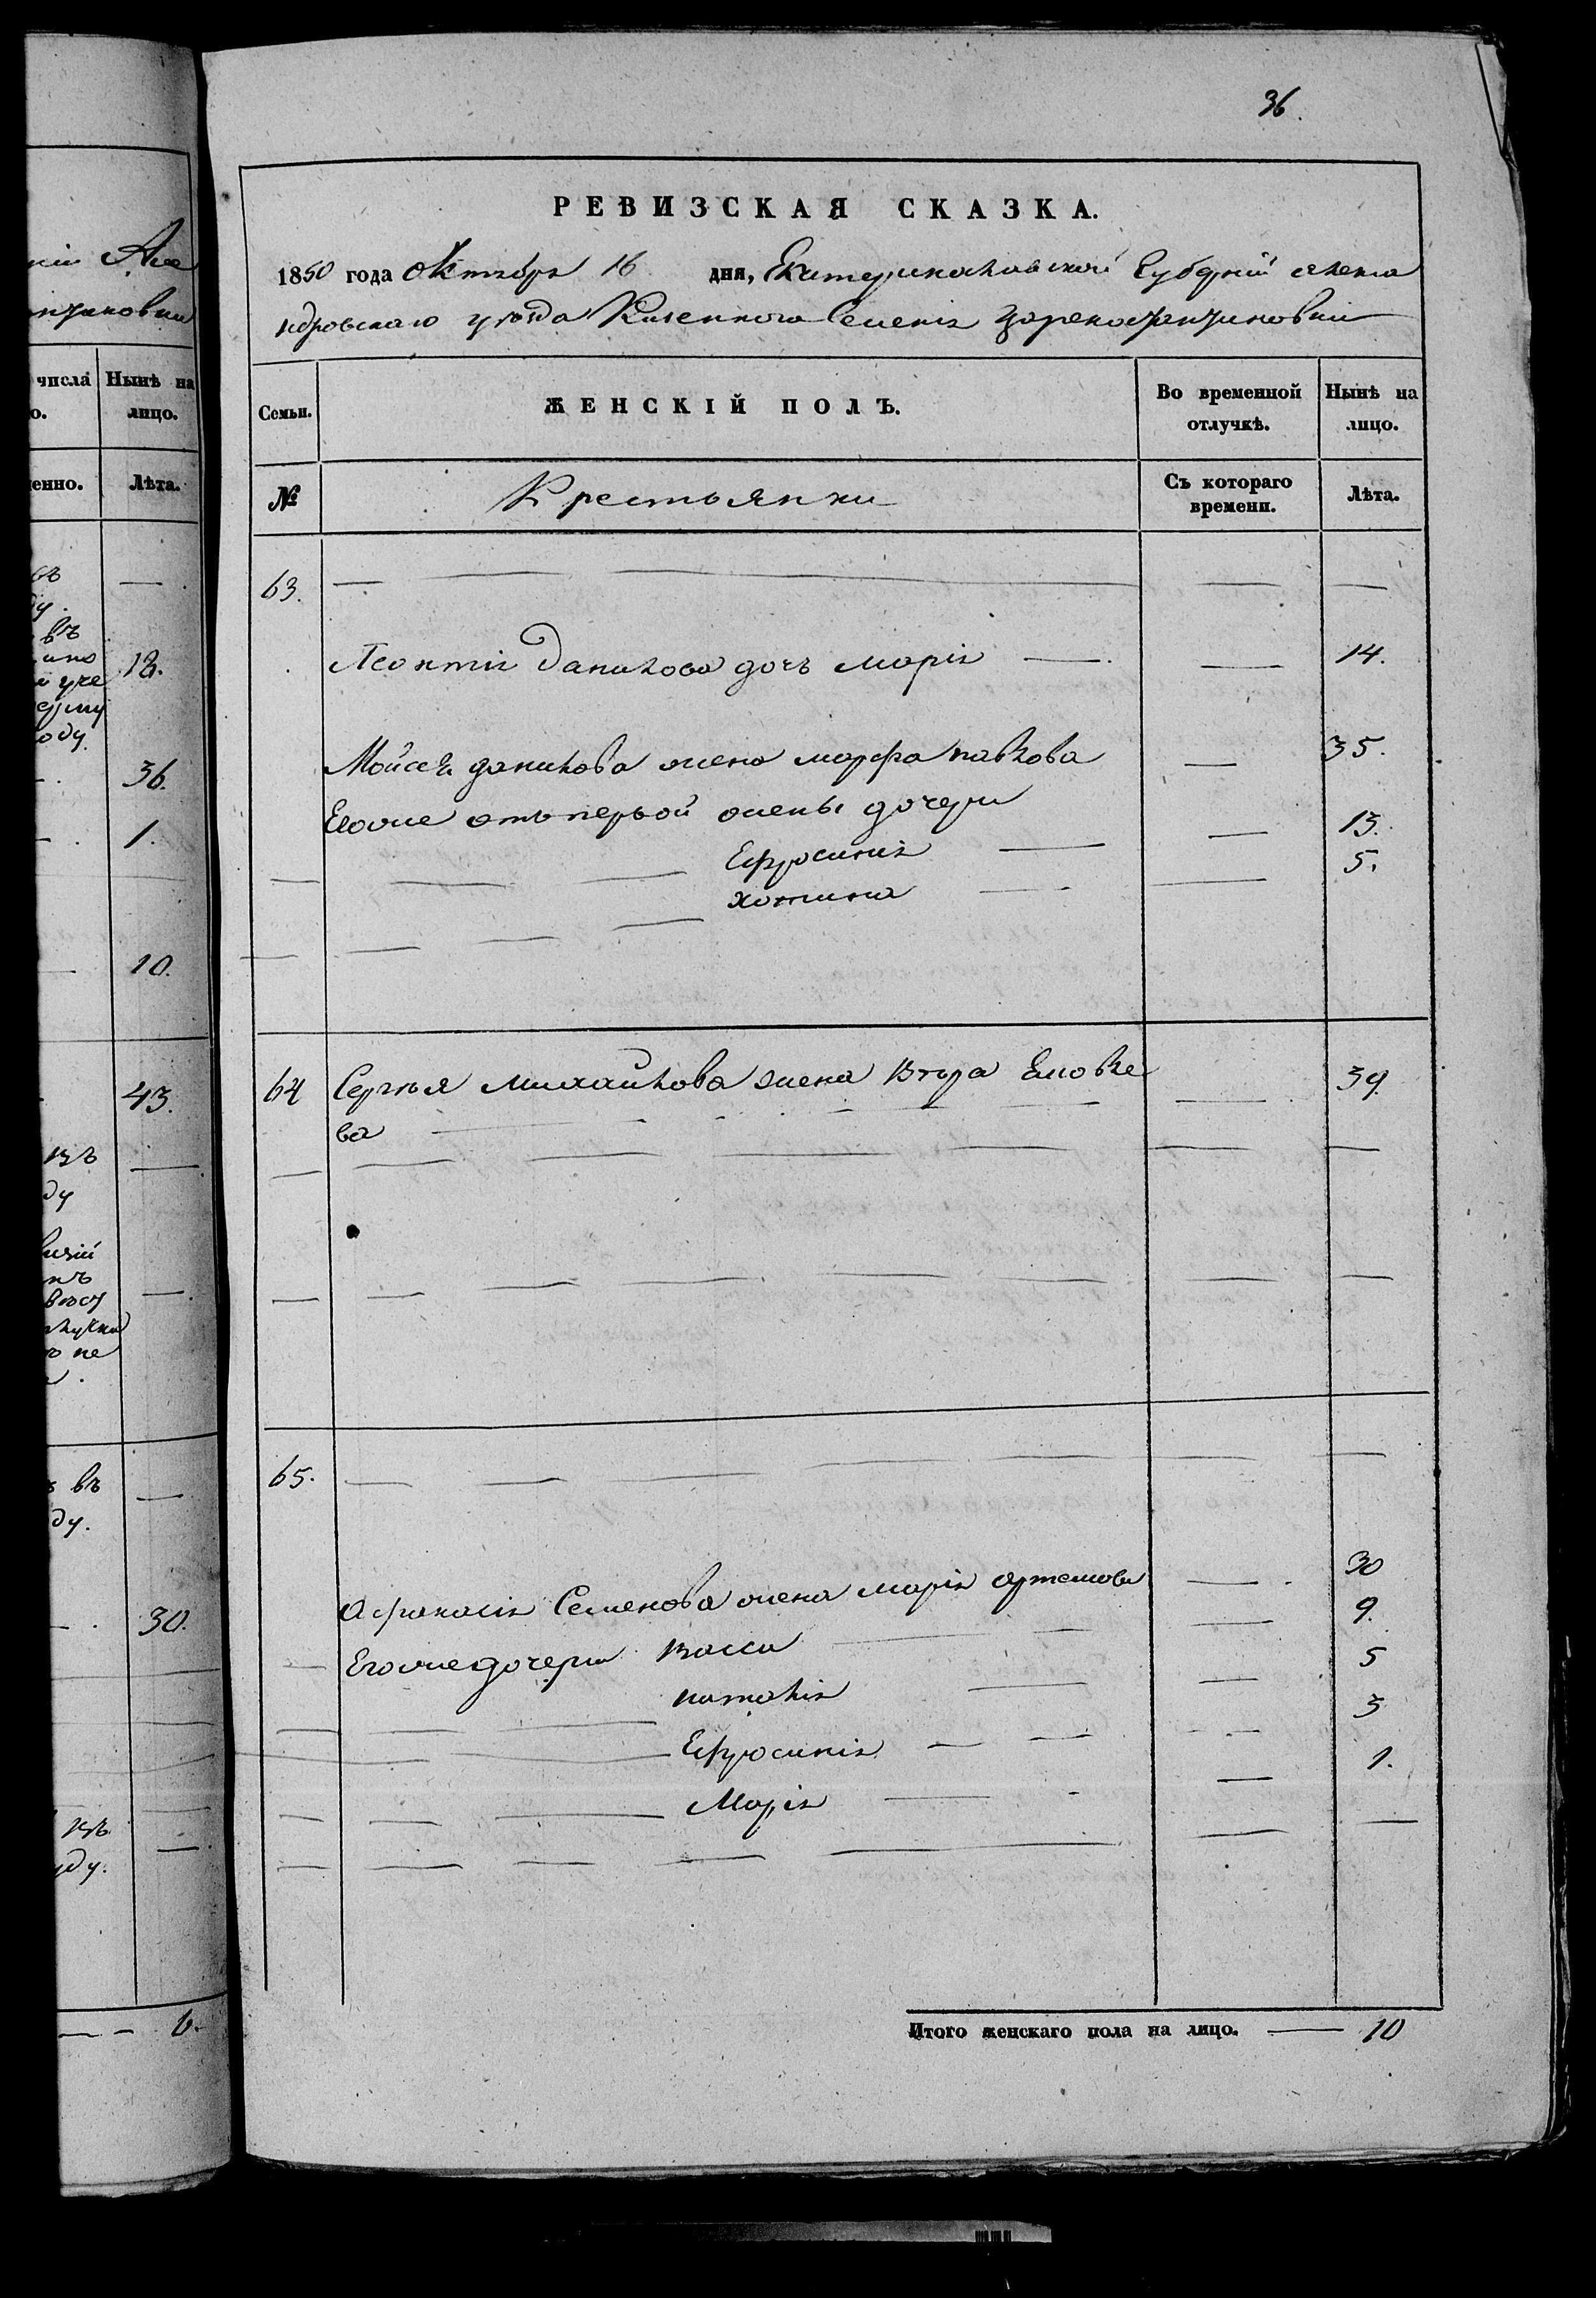 36.
РЕВИЗСКАЯ СКАЗКА.
1850 года Октября 16 дня, Екатеринославской Губерній Алекса
ндровскаго уѣзда Казеннаго Селенія Цареконстантиновки
Семьи.
ЖЕНСКІЙ ПОЛЪ.
Во временной отлучкѣ.
Нынѣ на лицо.
№
Крестьянки
Съ котораго времени.
Лѣта.
63.
Леонтія Данилова дочь Марія — 14.
Мойсея данилова жена марфа павлова — 35.
Егоже отъ первой жены дочери
Ефросинія — 13.
хотина — 5.
64 Сергѣя михайлова жена Вѣра Еловле — 39.
ва
65.
Афанасія Семенова жена марія артемова — 30
Егоже дочери Васса — 9.
наталія — 5
Ефросинія — 3
Марія — 1.
Итого женскаго пола на лицо. — 10
числа
Нынѣ на
лицо.
Лѣта.
въ
18.
36.
1.
10.
43.
въ
30.
6.